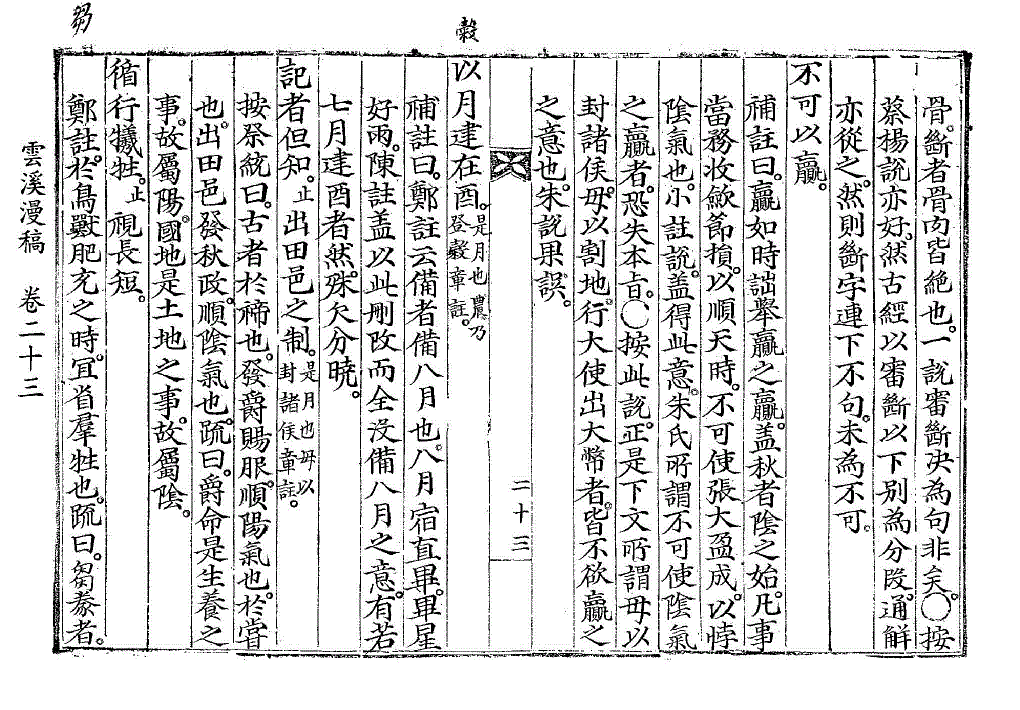 骨。斷者骨肉皆絶也。一說審斷决為句非矣。○按
蔡楊說亦好。然古經以審斷以下別為分段。通解
亦從之。然則斷字連下不句。未為不可。
不可以贏。
補註曰。贏如時詘擧贏之贏。盖秋者陰之始。凡事
當務收歛節損。以順天時。不可使張大盈成。以悖
陰氣也。小註說。盖得此意。朱氏所謂不可使陰氣
之贏者。恐失本旨。○按此說。正是下文所謂毋以
封諸侯。毋以割地。行大使出大幣者。皆不欲贏之
之意也。朱說果誤。
二十三
以月建在酉。是月也農乃登糓章註。
補註曰。鄭註云備者備八月也。八月宿直畢。畢星
好雨。陳註盖以此刪改而全沒備八月之意。有若
七月建酉者然。殊欠分曉。
記者但知。止出田邑之制。是月也毋以封諸侯章註。
按祭統曰。古者於禘也。發爵賜服。順陽氣也。於嘗
也。出田邑發秋政。順陰氣也。䟽曰。爵命是生養之
事。故屬陽。國地是土地之事。故屬陰。
循行犧牲。止視長短。
鄭註。於鳥獸肥充之時。宜省羣牲也。䟽曰。芻豢者。
糓
芻
雲溪漫稿 卷二十三